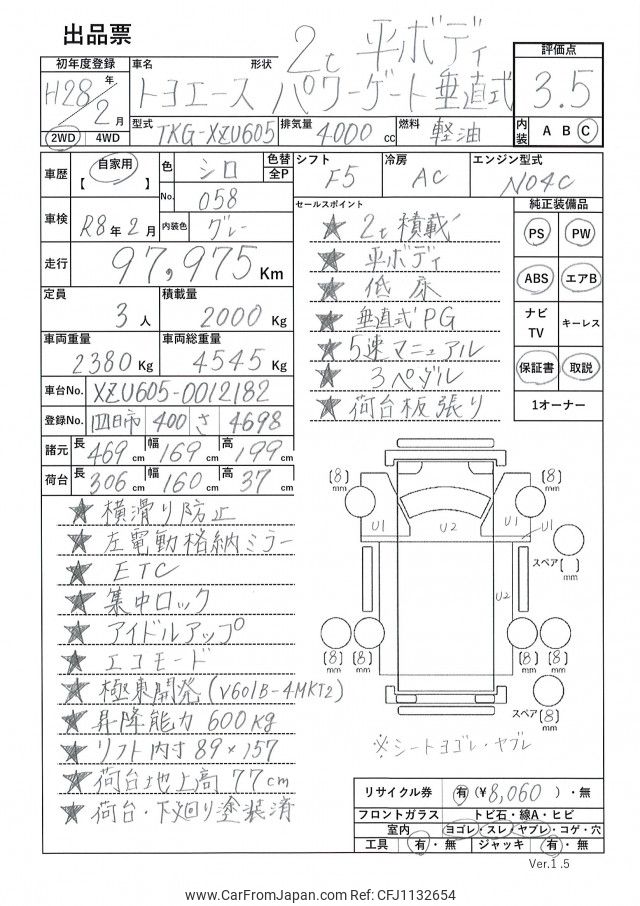 出品票
2t 平ボディ
初年度登録 車名 形状 評価点
H28年2月 トヨエース パワーゲート垂直式 3.5
型式 TKG-XZU605 排気量 4000cc 燃料 軽油 内装 A B C
2WD 4WD
車歴 自家用 【 】 色 シロ 色替 全P シフト F5 冷房 AC エンジン型式 N04C
No. 058
セールスポイント 純正装備品
車検 R8年2月 内装色 グレー
★ 2t積載 PS PW
走行 97,975 Km
★ 平ボディ
★ 低床 ABS エアB
定員 3人 積載量 2000Kg
★ 垂直式PG ナビ TV キーレス
車両重量 2380Kg 車両総重量 4545Kg
★ 5速マニュアル
★ 3ペダル 保証書 取説
車台No. XZU605-0012182
★ 荷台板張り 1オーナー
登録No. 四日市 400 さ 4698
諸元 長 469cm 幅 169cm 高 199cm
荷台 長 306cm 幅 160cm 高 37cm
★ 横滑り防止
★ 左電動格納ミラー
★ ETC
★ 集中ロック
★ アイドルアップ
★ エコモード
★ 極東開発(V601B-4MKT2)
★ 昇降能力 600Kg
★ リフト内寸 89×157
★ 荷台地上高 77cm
★ 荷台・下廻り塗装済
〔8〕mm 〔8〕mm
U1 U2 U1 U1
スペア〔 〕mm
U2
〔8〕mm 〔8〕mm 〔8〕mm 〔8〕mm
スペア〔8〕mm
※シートヨゴレ・ヤブレ
リサイクル券 有(¥8,060)・無
フロントガラス トビ石・線A・ヒビ
室内 ヨゴレ・スレ・ヤブレ・コゲ・穴
工具 有・無 ジャッキ 有・無
Ver.1.5
www.CarFromJapan.com Ref: CFJ1132654